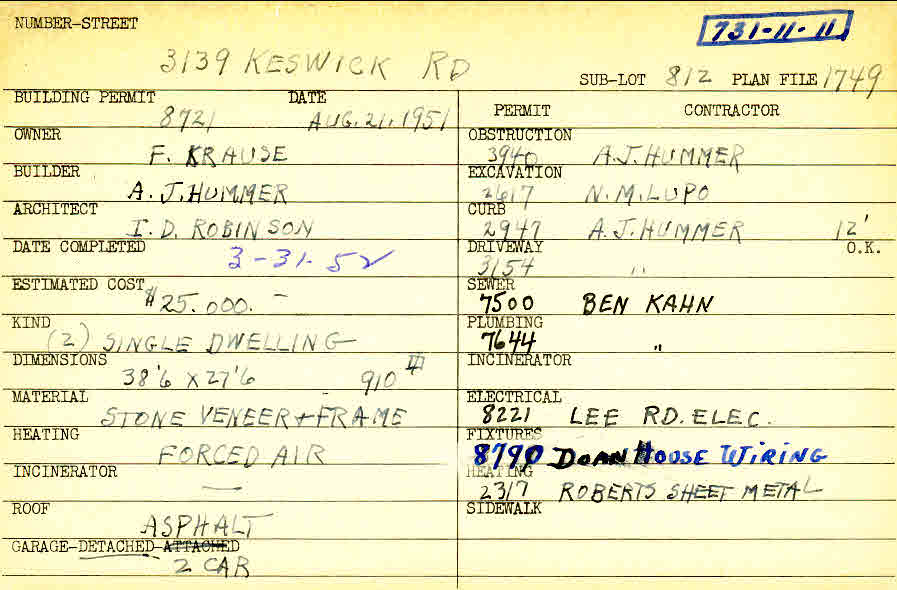 NUMBER-STREET
731-11-11
3139 KESWICK RD
SUB-LOT 812 PLAN FILE 1749
BUILDING PERMIT DATE
8721 AUG. 21. 1951
OWNER
F. KRAUSE
BUILDER
A. J. HUMMER
ARCHITECT
I. D. ROBINSON
DATE COMPLETED
3-31-52
ESTIMATED COST
$25.000.-
KIND
(2) SINGLE DWELLING
DIMENSIONS
38'6 X 27'6 910
MATERIAL
STONE VENEER + FRAME
HEATING
FORCED AIR
INCINERATOR
—
ROOF
ASPHALT
GARAGE-DETACHED-ATTACHED
2 CAR
PERMIT CONTRACTOR
OBSTRUCTION
3940 A.J. HUMMER
EXCAVATION
2617 N.M. LUPO
CURB
2947 A.J. HUMMER 12'
DRIVEWAY O.K.
3154 "
SEWER
7500 BEN KAHN
PLUMBING
7644 "
INCINERATOR
ELECTRICAL
8221 LEE RD. ELEC.
FIXTURES
8790 DOAN HOUSE WIRING
HEATING
2317 ROBERTS SHEET METAL
SIDEWALK